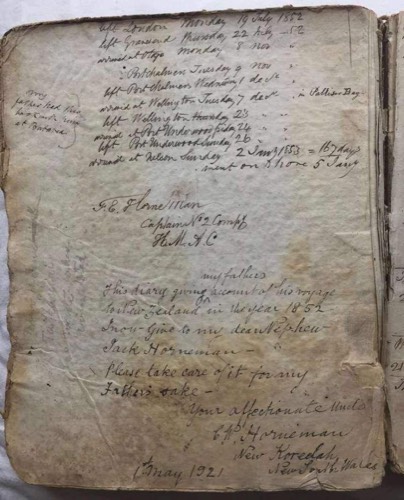 left London Monday 19 July 1852
left Gravesend Thursday 22 July -52
arrived at Otago Monday 8 Nov "
" Portchalmers Tuesday 9 Nov "
left Port Chalmers Wednesday 1 Dec "
arrived at Wellington Tuesday 7 Dec " in Palliser Bay
left Wellington Thursday 23 "
arrived at Port Underwood Friday 24 "
left Port Underwood Sunday 26
arrived at Nelson Sunday 2 Jany 1853 = 167 days
went on Shore 5 Jany
my
father had
at
F. E. Horneman
Captain No 2 Compy
H. M. A. C
my fathers
This diary giving account of his voyage
to New Zealand in the year 1852
I now Give to my dear Nephew
Jack Horneman —
Please take care of it for my
Father's sake —
Your affectionate Uncle
Horneman
New
New South Wales
1st May 1921